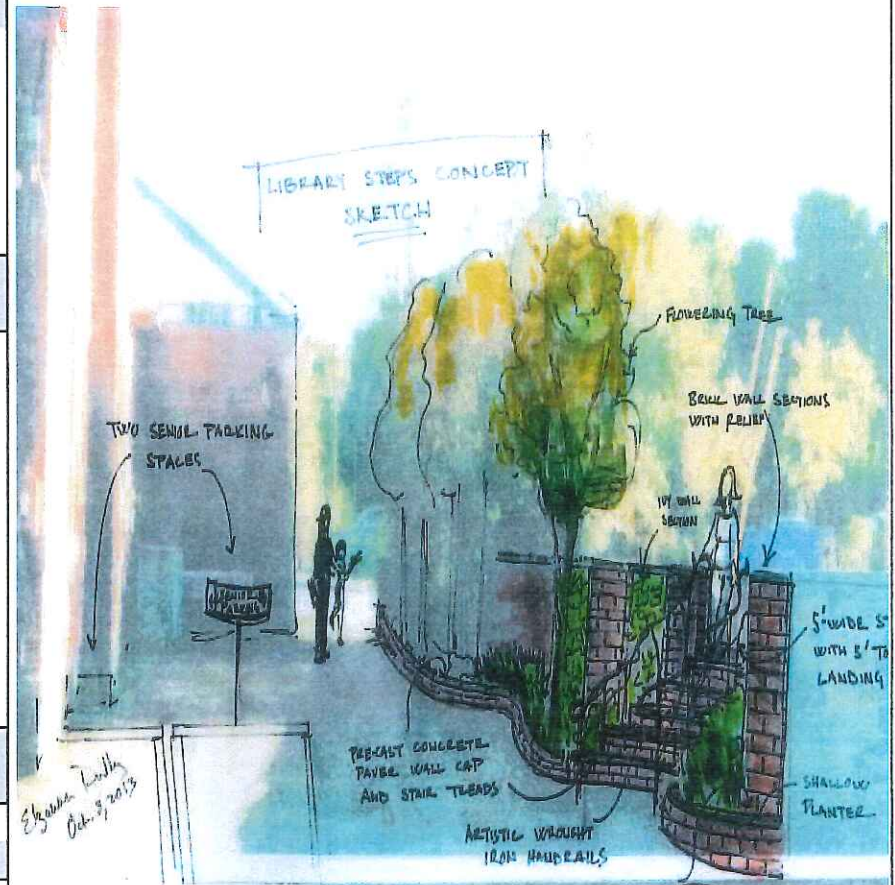 LIBRARY STEPS CONCEPT
SKETCH
FLOWERING TREE
BRICK WALL SECTIONS
WITH RELIEF
TWO SENIOR PARKING
SPACES
IVY WALL
SECTION
SENIOR
PARKING
5' WIDE
WITH 5'
LANDING
PRE-CAST CONCRETE
PAVER WALL CAP
AND STAIR TREADS
SHALLOW
PLANTER
ARTISTIC WROUGHT
IRON HANDRAILS
Oct. 3, 2013